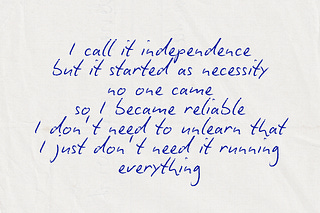 I call it independence
but it started as necessity
no one came
so I became reliable
I don't need to unlearn that
I just don't need it running
everything